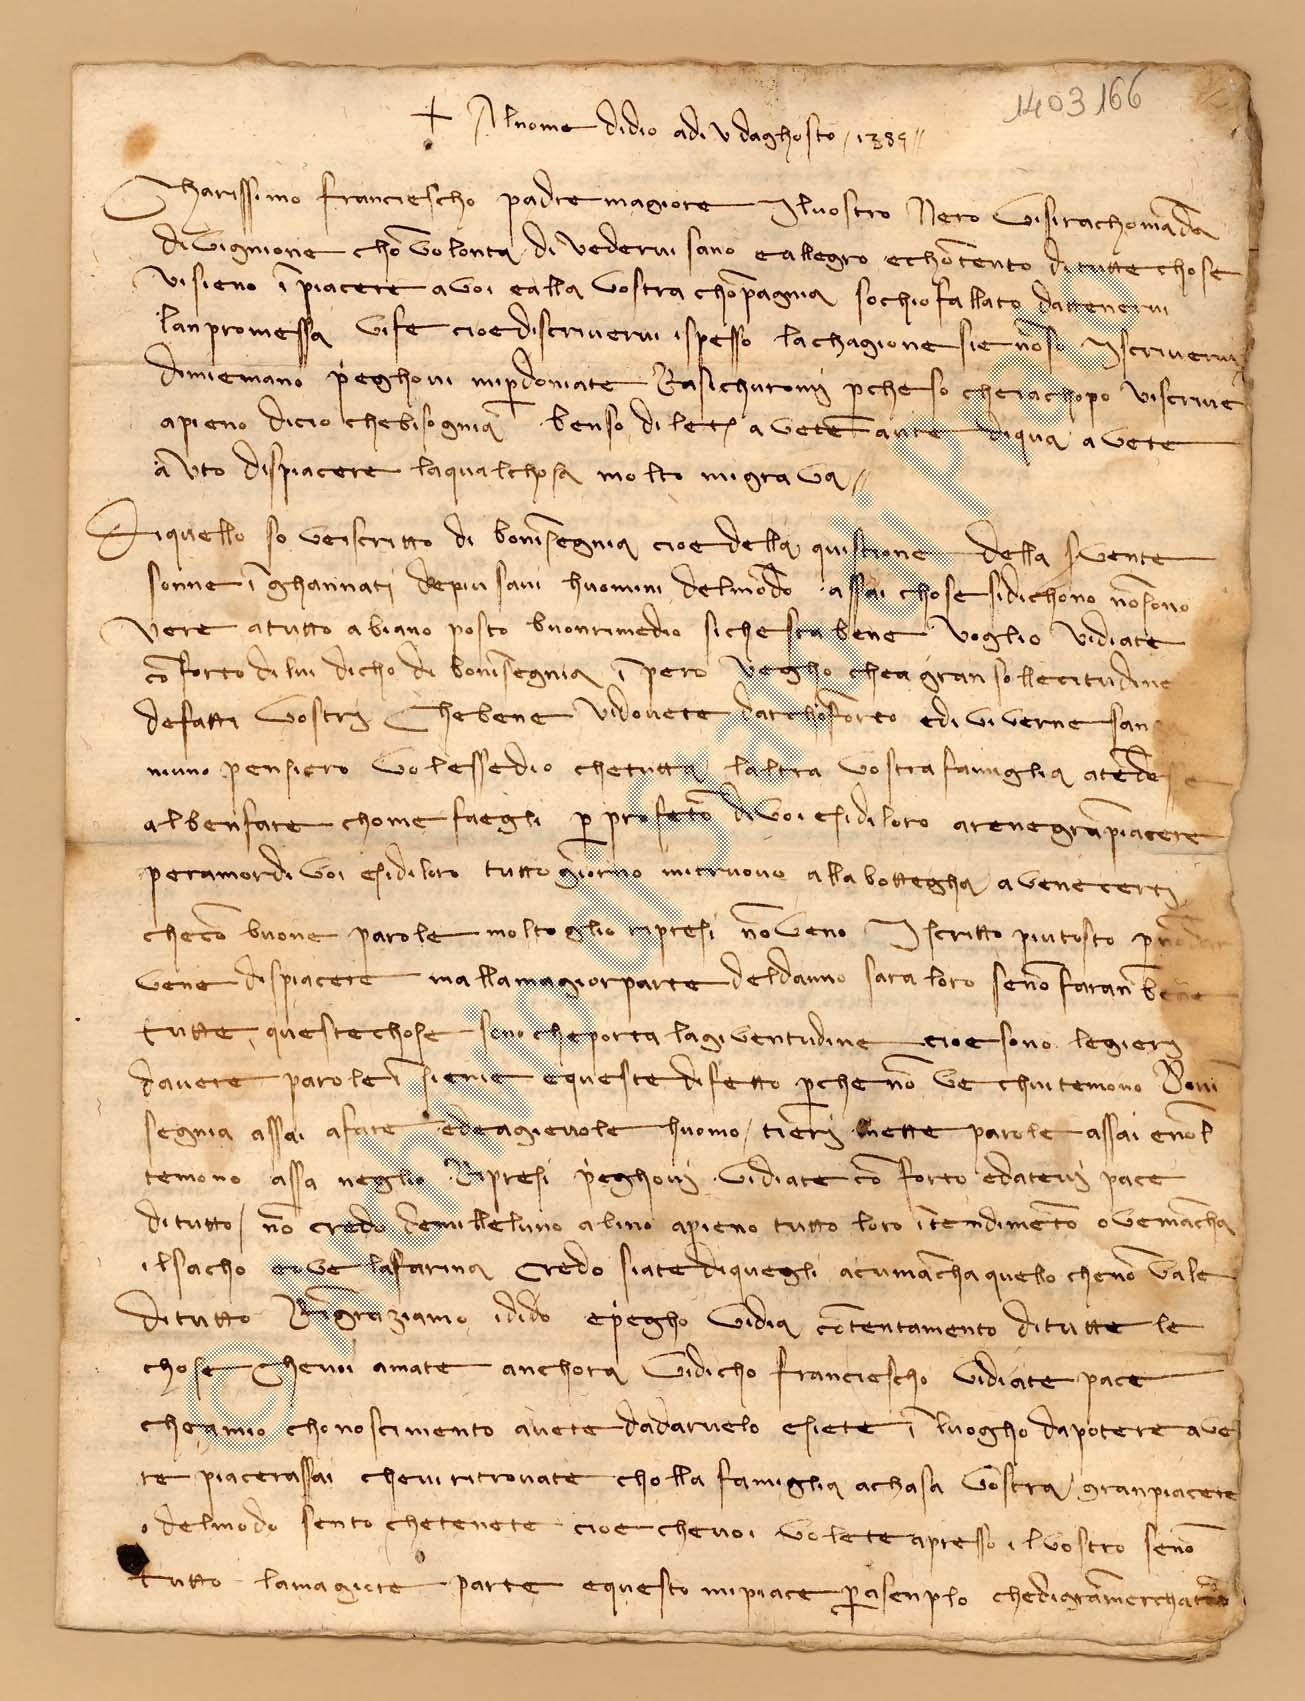 1403166
+ Al nome di dio adi V daghosto 1389
Charissimo franciescho padre magiore Il vostro Nero vi si rachomāda
di vignione chō volontà di vedervi sano e allegro e chōtento di tutte chose
vi sieno ī piacere a voi e alla vostra chōpagnia so chio fallato dattenervi
lan promessa vi fe cioe discrivervi ispesso la chagione sie nōso Iscrivervi
di mie mano preghovi mi perdoniate Rasichuromi perche so che iachopo vi scrive
a pieno di cio che bisognia ben so di let. avete ante di qua avete
āvto dispiacere la qual chosa molto mi grava
Di quello so vei scritto di bonīsegnia cioe della quistione della sovente
sonne īghannati de piu savi huomini del mōdo assai chose si dichono nō sono
vere a tutto abiano posto buon rimedio siche sta bene voglio vi diate
cōforto di lui dicho di bonīsegnia īpero vegho che a gran sollecitudine
de fatti vostri che bene vi dovete dar chōforto e di viverne san
niuno pensiero volesse dio che tutta laltra vostra famiglia atēdesse
al ben fare chome fa egli per profetto di voi e si di loro arene grā piacere
per amor di voi e si di loro tutto giorno mi truovo alla bottegha a vene certi
che cō buone parole molto glio ripresi nō veno Iscritto piu tosto per nō dar
vene dispiacere ma lla magior parte del danno sara loro se nō faran bene
tutte queste chose sono che porta la gioventudine cioe sono legieri
davere parole īsieme e queste difetto perche nō ve chui temono Boni
segnia assai a fare ed e agievole huomo tieri mette parole assai e nol
temono assa ne glio Ripresi preghovi vi diate cōforto e datevi pace
di tutto nō credo de mille luno a lino a pieno tutto loro ītendimēto ove mācha
il sacho e ove la farina credo siate di quegli a cui mācha quello che nō vale
di tutto Rīgraziamo idio e pregho vi dia cōtentamento di tutte le
chose che voi amate anchora vi dicho franciescho vi diate pace
che a mio chonoscimento avete da darvelo e siete ī luogho da potere ave
re piacer assai che vi ritrovate cholla famiglia a chasa vostra gran piacere
o del modo sento che tenete cioe che voi volete apresso il vostro se nō
tutto la magiore parte e questo mi piace per asenplo che di grā merchatāti